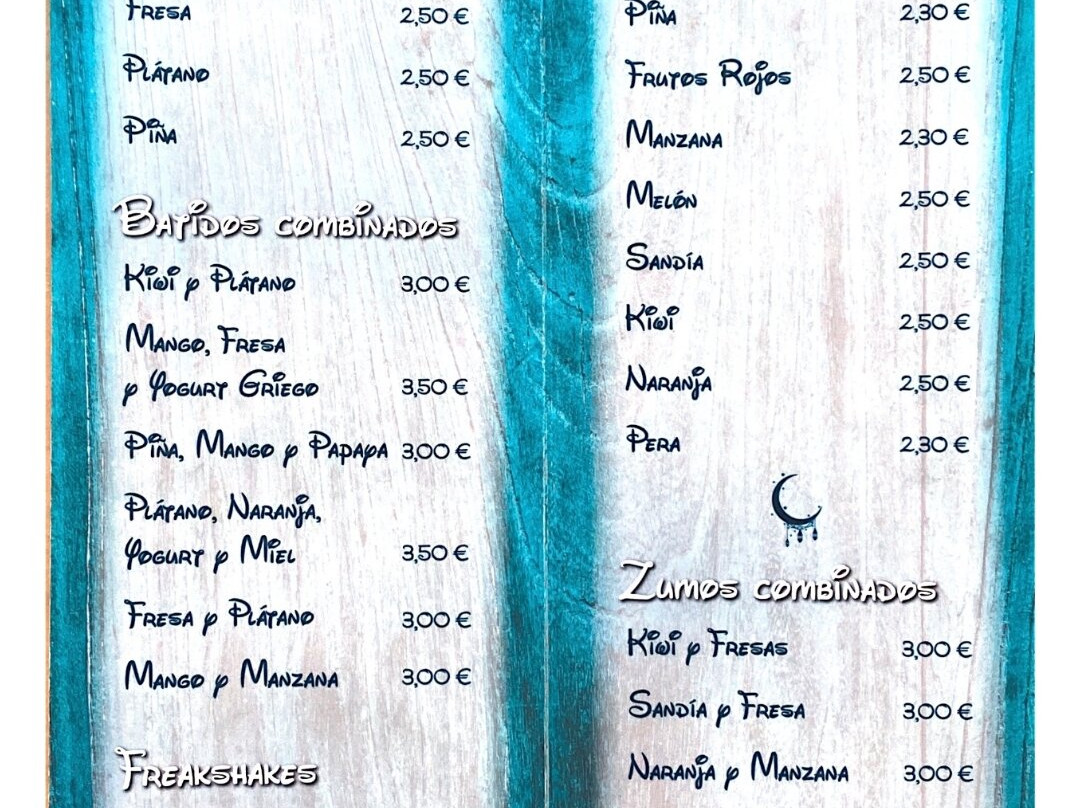 Fresa 2,50 €
Plátano 2,50 €
Piña 2,50 €
Batidos combinados
Kiwi y Plátano 3,00 €
Mango, Fresa
y Yogurt Griego 3,50 €
Piña, Mango y Papaya 3,00 €
Plátano, Naranja,
Yogurt y Miel 3,50 €
Fresa y Plátano 3,00 €
Mango y Manzana 3,00 €
Freakshakes
Piña 2,30 €
Frutos Rojos 2,50 €
Manzana 2,30 €
Melón 2,50 €
Sandía 2,50 €
Kiwi 2,50 €
Naranja 2,50 €
Pera 2,30 €
Zumos combinados
Kiwi y Fresas 3,00 €
Sandía y Fresa 3,00 €
Naranja y Manzana 3,00 €